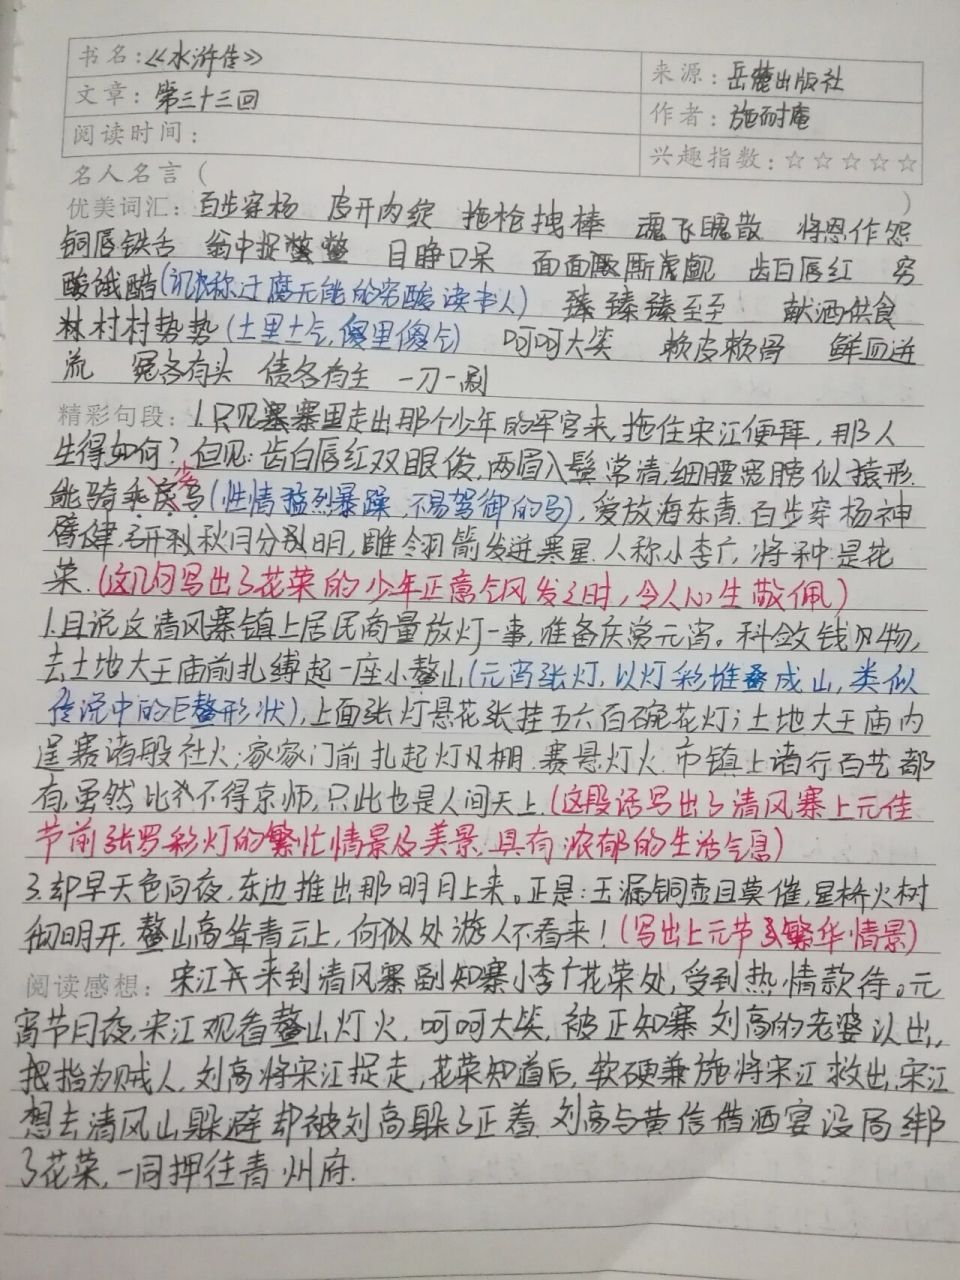 书名:《水浒传》
来源:岳麓出版社
文章:第三十三回
作者:施耐庵
阅读时间:
兴趣指数:☆☆☆☆☆
名人名言( )
优美词汇:百步穿杨 皮开肉绽 拖枪拽棒 魂飞魄散 将恩作怨
铜唇铁舌 瓮中捉鳖 目睁口呆 面面厮觑 齿白唇红 穷
酸饿醋(讥称过腐无能的穷酸读书人) 臻臻至至 献酒供食
村村势势(土里土气,傻里傻气) 呵呵大笑 赖皮赖骨 鲜血迸
流 冤各有头 债各有主 一刀一剐
精彩句段:1.只见寨里走出那个少年的军官来,拖住宋江便拜,那人
生得如何?但见:齿白唇红双眼俊,两眉入鬓常清,细腰宽膀似猿形.
能骑乖劣马(性情猛烈暴躁,不易驾御的马),爱放海东青.百步穿杨神
臂健,弓开秋月分明,雕翎箭发迸寒星.人称小李广,将种是花
荣.(这几句写出了花荣的少年正意气风发之时,令人心生敬佩)
1.且说这清风寨镇上居民商量放灯一事,准备庆赏元宵。科敛钱物,
去土地大王庙前扎缚起一座小鳌山(元宵张灯,以灯彩堆叠成山,类似
传说中的巨鳌形状),上面张灯悬花张挂五六百碗花灯;土地大王庙内
逞赛诸般社火;家家门前扎起灯棚.赛悬灯火.市镇上诸行百艺都
有,虽然比不得京师,只此也是人间天上.(这段话写出了清风寨上元佳
节前张罗彩灯的繁忙情景及美景,具有浓郁的生活气息)
3.却早天色向夜,东边推出那明月上来。正是:玉漏铜壶且莫催,星桥火树
彻明开,鳌山高耸青云上,何似处游人不看来!(写出上元节繁华情景)
阅读感想:宋江来到清风寨副知寨小李广花荣处,受到热情款待。元
宵节月夜,宋江观看鳌山灯火,呵呵大笑,被正知寨刘高的老婆认出,
把指为贼人,刘高将宋江捉走,花荣知道后,软硬兼施将宋江救出,宋江
想去清风山躲避却被刘高躲了正着.刘高与黄信借酒宴设局绑
了花荣,一同押往青州府.